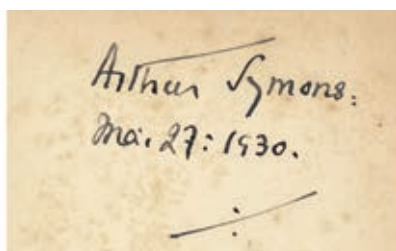 Arthur Symons:
Mai. 27: 1930.